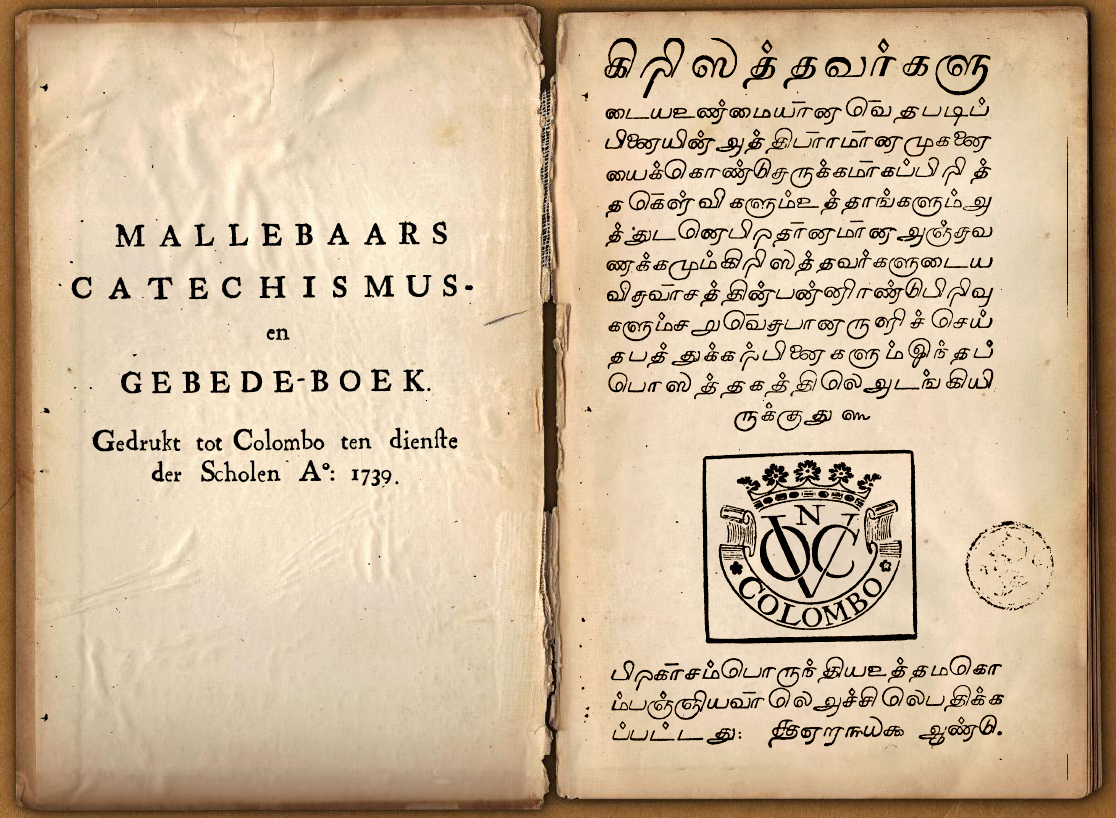 MALLEBAARS
CATECHISMUS-
en
GEBEDE-BOEK.
Gedrukt tot Colombo ten dienſte
der Scholen A°: 1739.
கிறிஸத்தவர்களு
டையஉண்மையான வெதபடிப்
பினையின் அத்திபாரமானமுகனை
யைக்கொண்டுசுருக்கமாகப்பிறித்
த கெள்விகளும்உத்தாங்களும்அ
த்துடனெபிறதானமான அஞ்சுவ
ணக்கமும்கிறிஸத்தவர்களுடைய
விசுவாசத்தின்பன்னிரண்டுபிறிவு
களும்சறுவெசுபானருளிச் செய்
தபத்துக்கற்பினைகளும்இந்தப்
பொஸத்தகத்திலெஅடங்கியி
ருக்குது ௳
N
VOC
COLOMBO
பிறகாசம்பொருந்தியஉத்தமகொ
ம்பஞ்ஞியவாலெஅச்சிலெபதிக்க
ப்பட்டது: ௲௭௱௩௰௯ ஆண்டு.